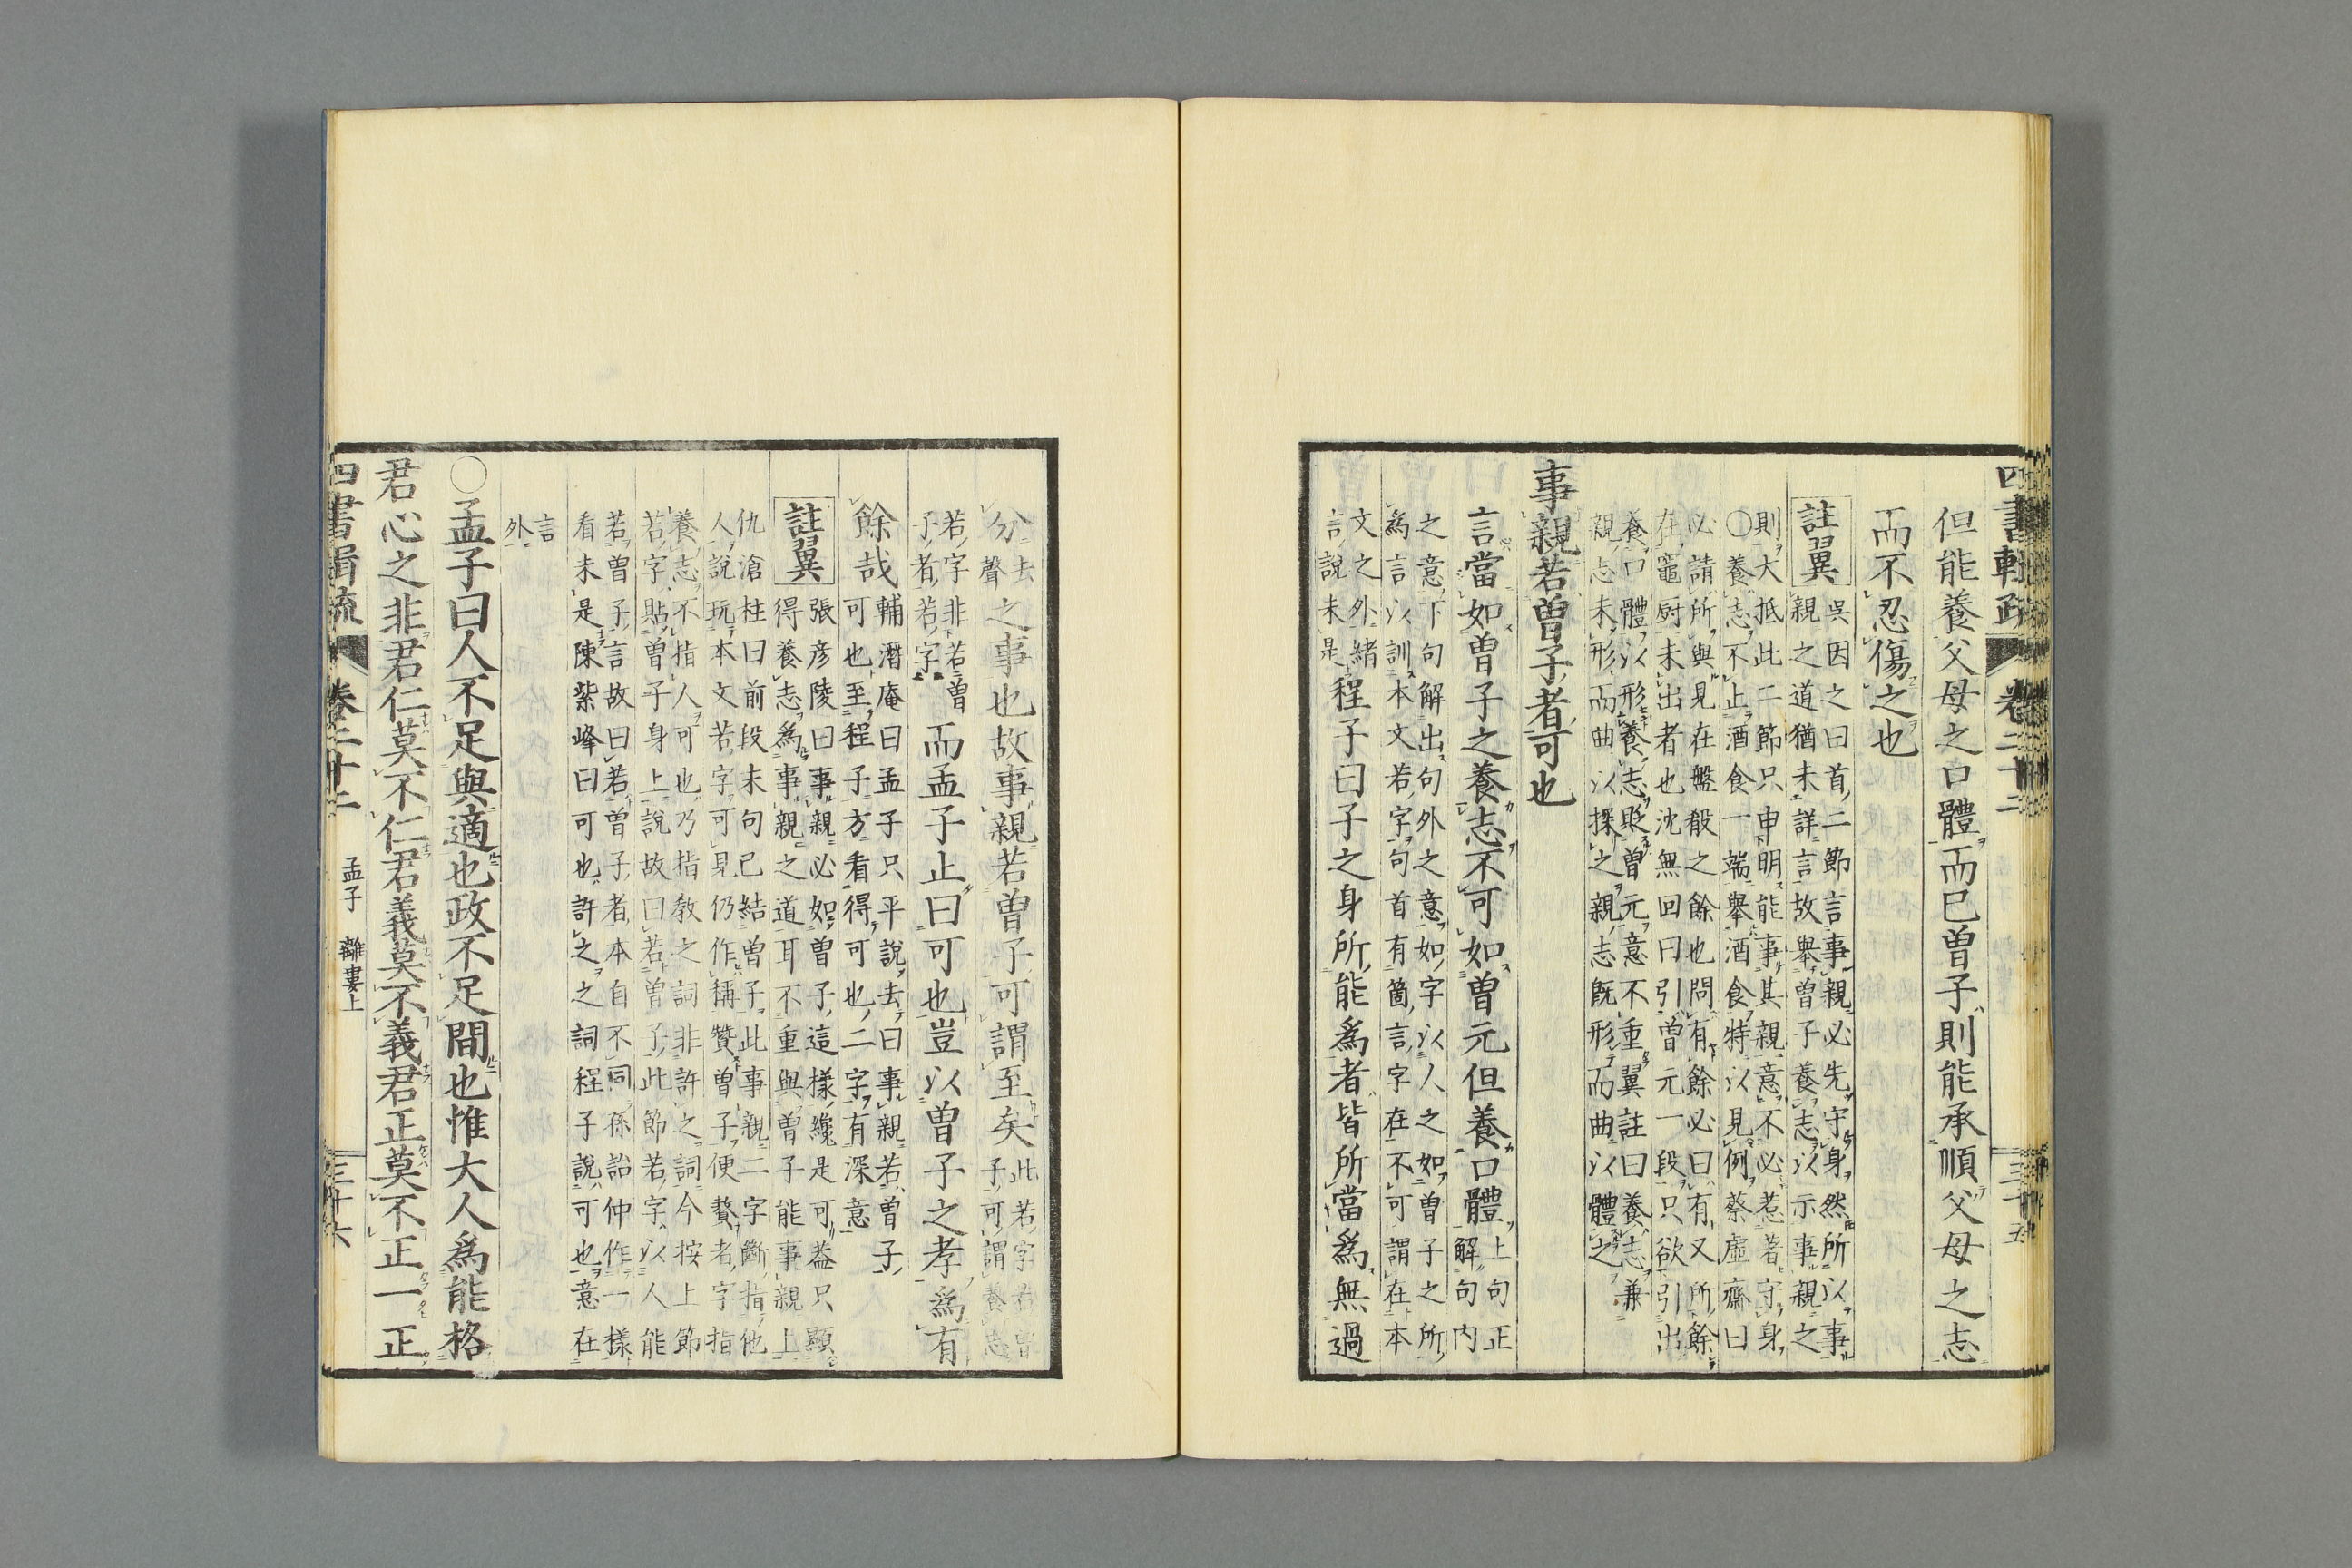 四書輯疏 卷二十二 三十五
但能養父母之口體而已曾子則能承順父母之志
而不忍傷之也
註翼 吳因之曰首二節言事親必先守身然所以事
親之道猶未詳言故舉曾子養志以示事親之
則大抵此二節只申明能事其親意不必惹著守身
○養志不止酒食一端舉酒食特以見例蔡虛齋曰
必請所與見在盤殽之餘也問有餘必曰有又所餘
在竈厨未出者也沈無回曰引曾元一段只欲引出
養口體以形養志貶曾元意不重翼註曰養志兼
親志未形而曲以探之親志既形而曲以體之
事親若曾子者可也
言當如曾子之養志不可如曾元但養口體 上句正
解句内
之意下句解出句外之意如字以人之如曾子之所
爲言以訓本文若字句首有箇言字在不可謂在本
文之外緒
言說未是 程子曰子之身所能爲者皆所當爲無過
分 去
聲 之事也故事親若曾子可謂至矣 此若字若曾
子可謂養志
若字非若曾
子者若字 而孟子止曰可也豈以曾子之孝爲有
餘哉 輔潛庵曰孟子只平說去曰事親若曾子
可也至程子方看得可也二字有深意
註翼 張彦陵曰事親必如曾子這樣纔是可葢只顯
得養志爲事親之道耳不重與曾子能事親上
仇滄柱曰前段末句已結曾子此事親二字斷指他
人說玩本文若字可見仍作稱贊曾子便贅者字指
養志不指人可也乃指敎之詞非許之詞今按上節
若字貼曾子身上說故曰若曾子此節若字以人能
若曾子言故曰若曾子者本自不同孫詒仲作一樣
看未是陳紫峰曰可也許之之詞程子說可也意在
言
外
○孟子曰人不足與適也政不足間也惟大人爲能格
君心之非君仁莫不仁君義莫不義君正莫不正一正
四書輯疏 卷二十二 孟子 離婁上 三十六